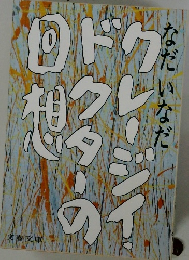 なだいなだ
クレージイ・
ドクターの
回想
文春文庫